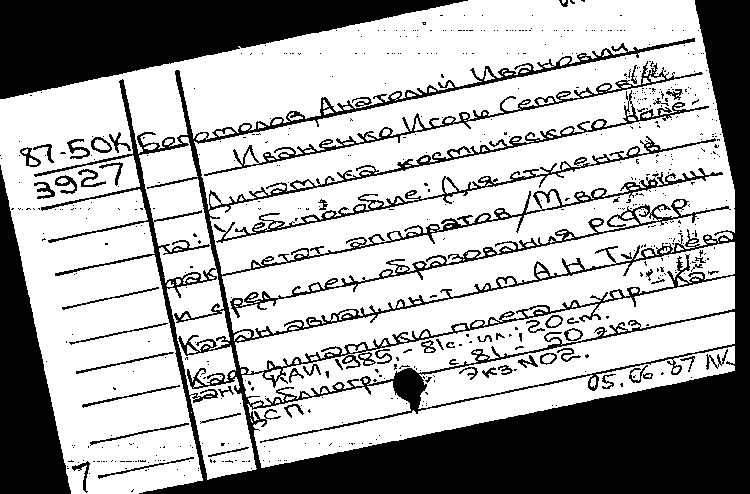 87-50К
3927
Богомолов, Анатолий Иванович,
Иваненко, Игорь Семенович
Динамика космического поле-
та: Учеб. пособие: Для студентов
фак. летат. аппаратов / М-во высш.
и сред. спец. образования РСФСР,
Казан. авиац. ин-т им. А.Н. Туполева
Каф. динамики полета и упр. - Ка-
зань: КАИ, 1985. - 81с.: ил.; 20см.
Библиогр.: с. 81. - 50 экз.
ДСП. Экз. №02.
05.06.87
7